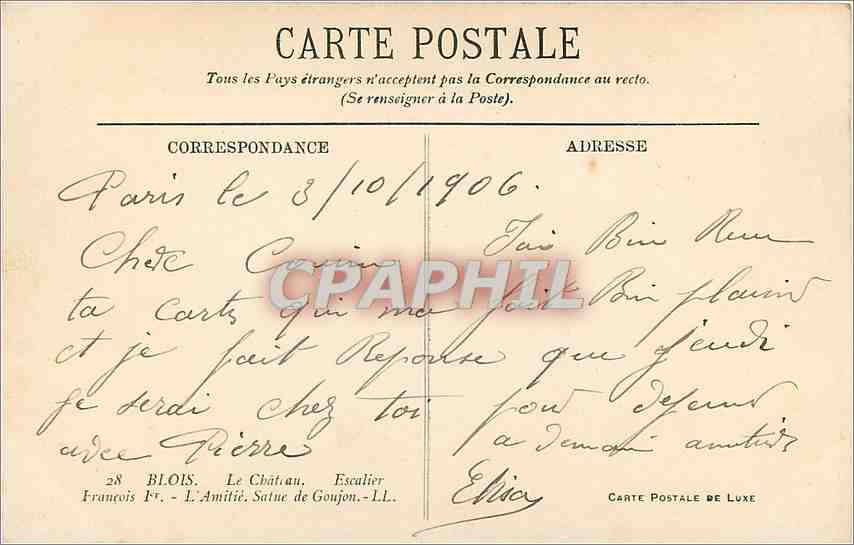 CARTE POSTALE
Tous les Pays étrangers n'acceptent pas la Correspondance au recto.
(Se renseigner à la Poste).
CORRESPONDANCE
ADRESSE
Paris le 3/10/1906.
Chere Cousine Jai Bien Recu
ta carte qui ma fait Bien plaisir
et je fait Reponse que jeudi
je serai chez toi pour dejeuner
avec Pierre a demain amitiés
Elisa
CPAPHIL
28 BLOIS. Le Château. Escalier
François Ier. - L'Amitié. Satue de Goujon. - LL.
CARTE POSTALE DE LUXE